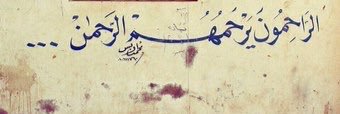 الرَّاحِمُونَ يَرْحَمُهُمُ الرَّحْمٰنُ ...